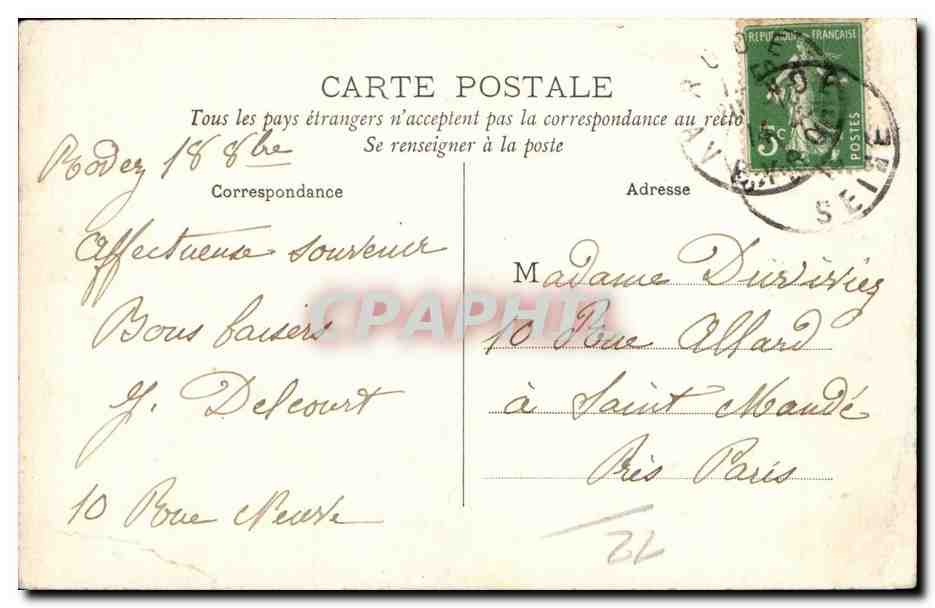 CARTE POSTALE
Tous les pays étrangers n'acceptent pas la correspondance au recto
Se renseigner à la poste
REPUBLIQUE FRANÇAISE
5c
POSTES
SEINE
Rodez 18 8bre
Correspondance
Affectueuse souvenir
Bons baisers
Y. Delcourt
10 Rue Neuve
Adresse
Madame Duvivier
10 Rue Allard
à Saint Mandé
Près Paris
22
CPAPHIL